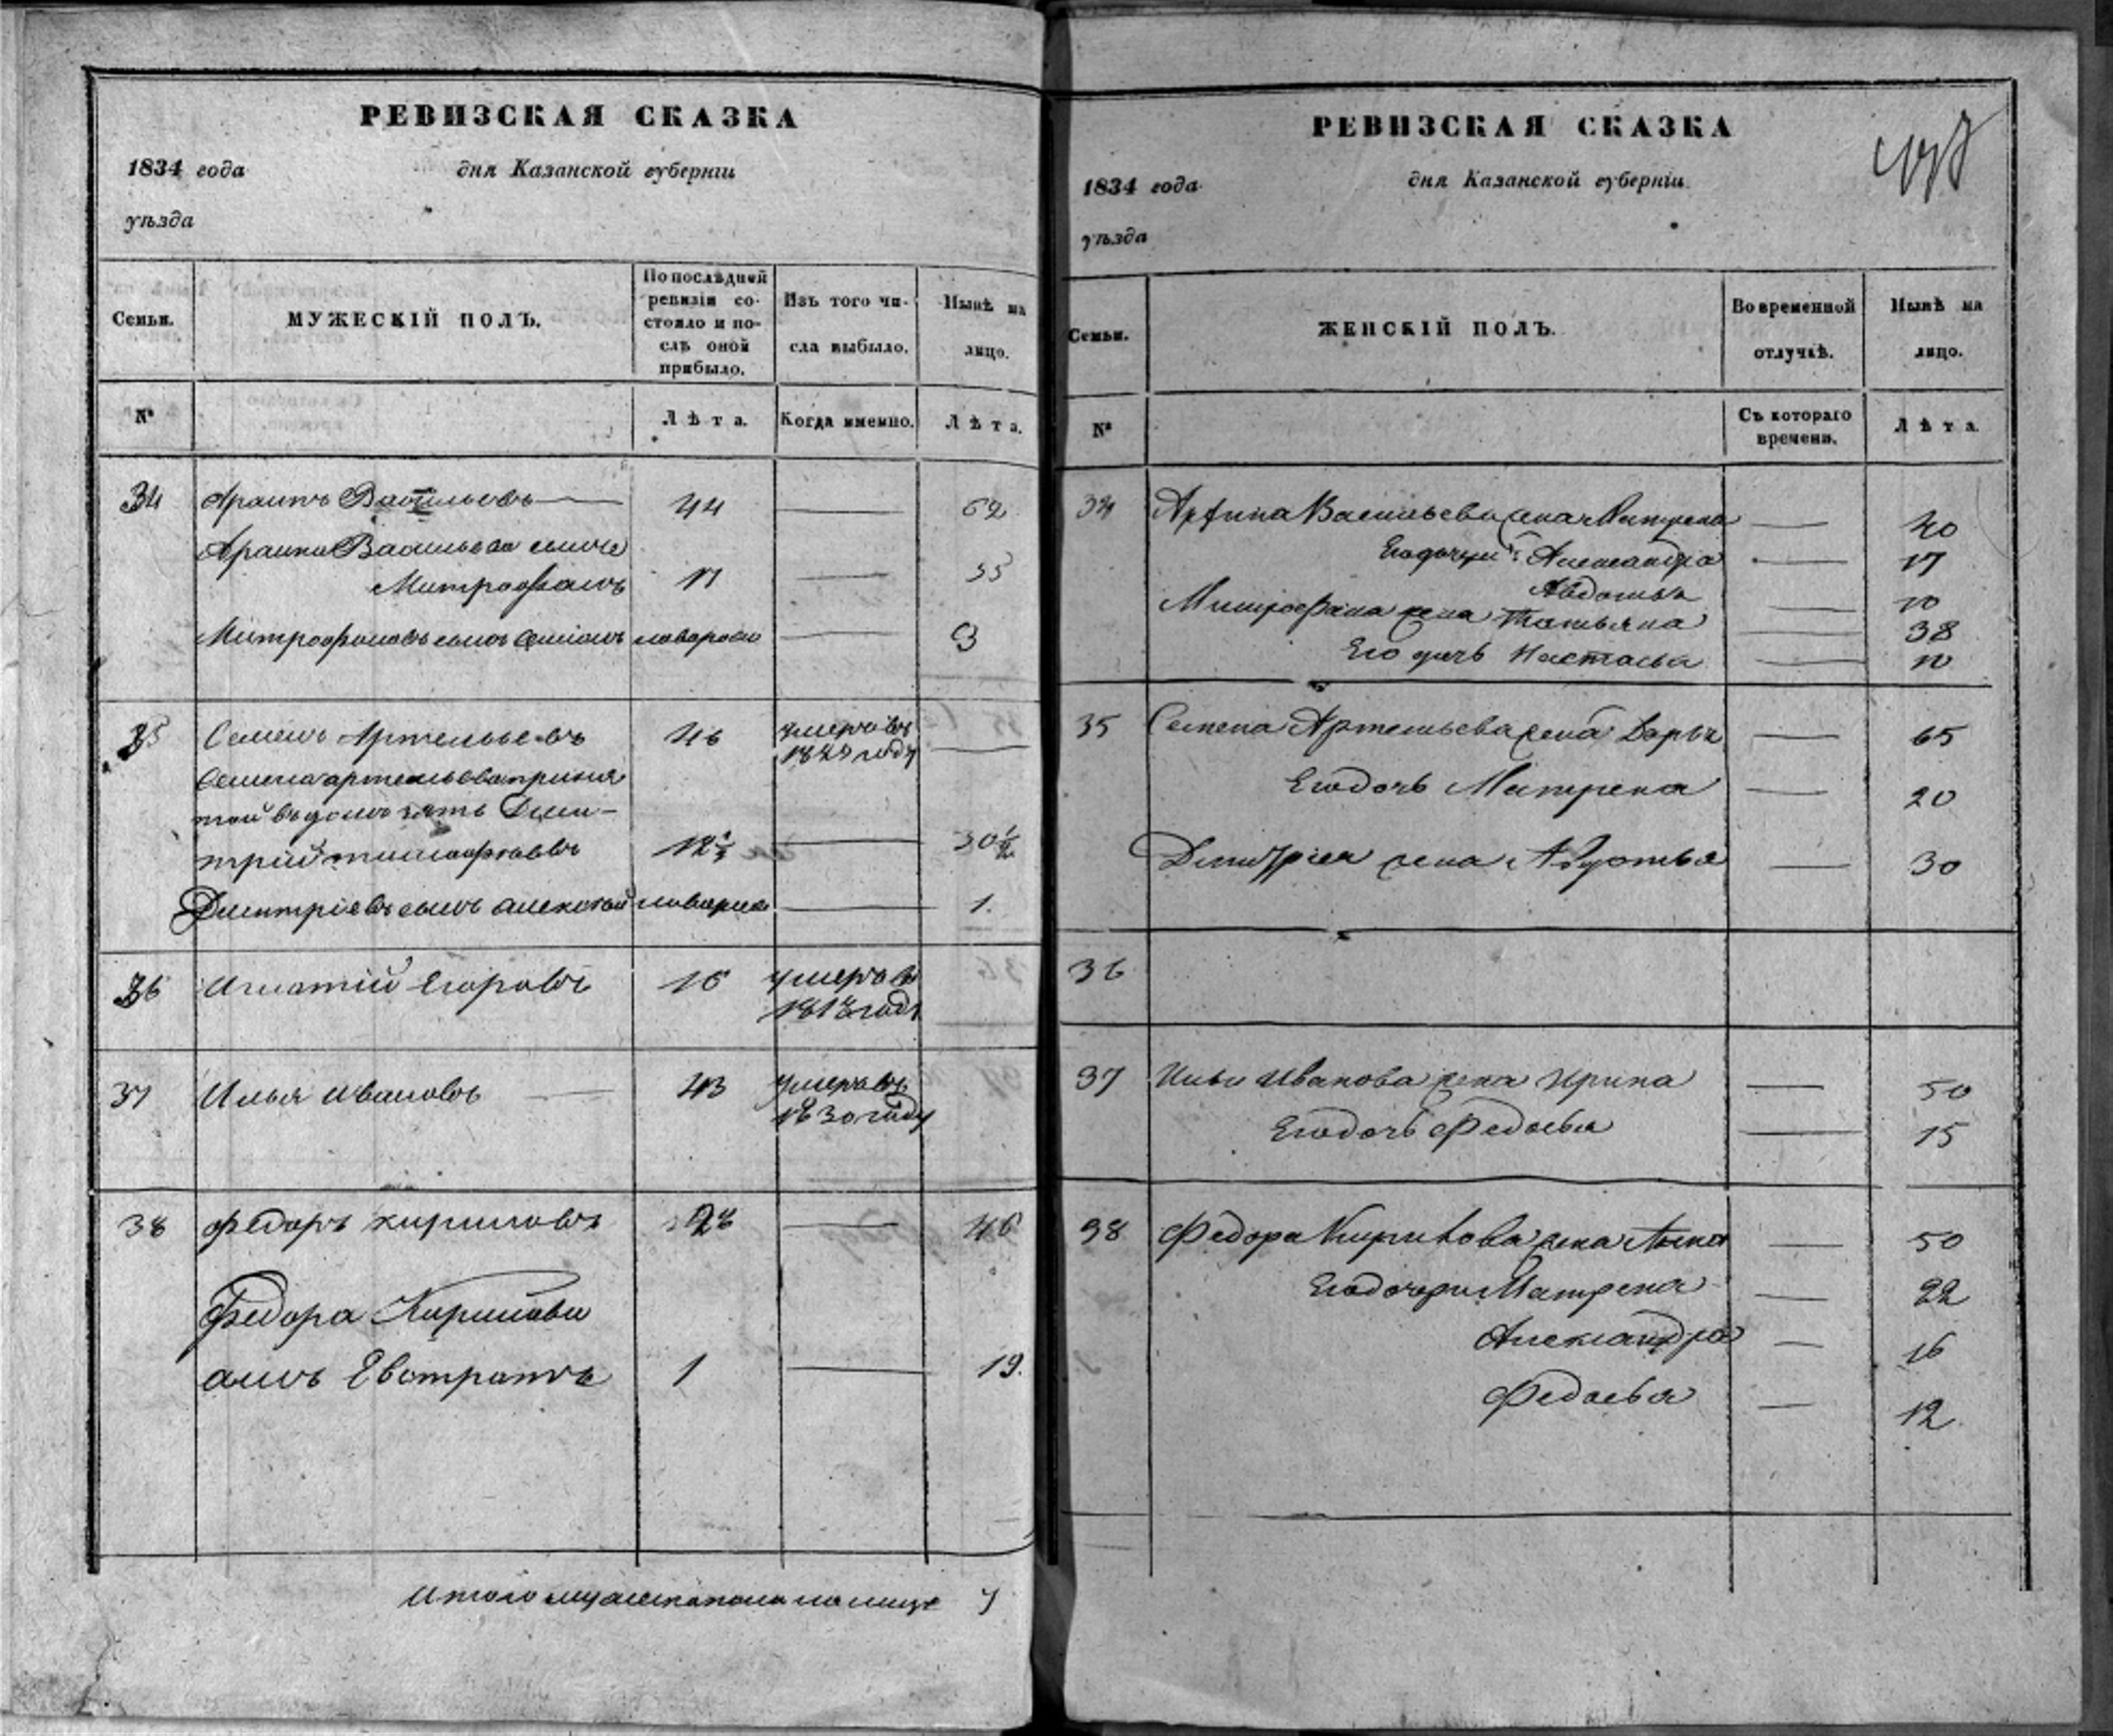 РЕВИЗСКАЯ СКАЗКА
1834 года дня Казанской губернiи
уѣзда
Семьи.
МУЖЕСКIЙ ПОЛЪ.
По послѣдней
ревизiи со-
стояло и по-
слѣ оной
прибыло.
Изъ того чи-
сла выбыло.
Нынѣ на
лицо.
№
Лѣта.
Когда именно.
Лѣта.
34 Васильевъ 44 62
Васильева сынъ
Митрофанъ 17 35
Митрофановъ сынъ 3
35 Семенъ Артемьевъ 46 умеръ въ
году
Семена Артемьева приня
той въ домъ зять Дми-
трий 12½ 30½
Дмитрiевъ сынъ Алексей 1.
36 Игнатiй Егоровъ 16 умеръ въ
1818 году
37 Илья Ивановъ 43 умеръ въ
1830 году
38 Федоръ Кириловъ 28 46
Федора Кирилова
сынъ Евстратъ 1 19.
Итого мужеска пола на лицо 7
РЕВИЗСКАЯ СКАЗКА
1834 года дня Казанской губернiи
уѣзда
Семьи.
ЖЕНСКIЙ ПОЛЪ.
Во временной
отлучкѣ.
Нынѣ на
лицо.
№
Съ котораго
времени.
Лѣта.
34 Васильева жена Матрена 40
Его дочери: Александра 17
Авдотья 10
Митрофана жена Татьяна 38
Его дочь Настасья 10
35 Семена Артемьева жена Дарья 65
Его дочь Матрена 20
Дмитрiя жена 30
36
37 Ильи Иванова жена Ирина 50
Его дочь Федосья 15
38 Федора Кирилова жена Анна 50
Его дочери Матрена 22
Александра 16
Федосья 12